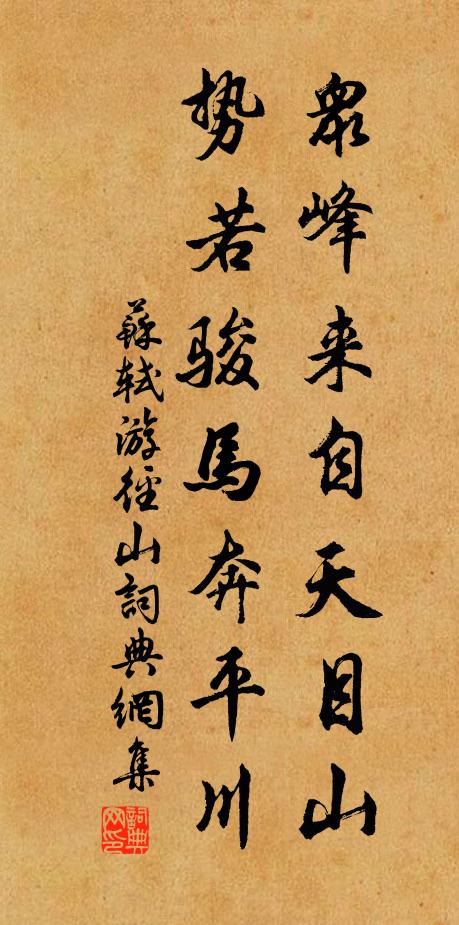 眾峰来自天目山
勢若駿馬奔平川
蘇軾游徑山詞典網集
詞典网印